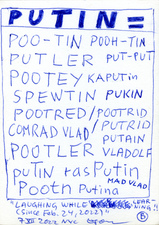 PUTIN =
POO-TIN POOH-TIN
PUTLER PUT-PUT
POOTEY KAPUTIN
SPEWTIN PUKIN
POOTRED/POOTRID
COMRAD VLAD/PUTRID
PUTAIN
POOTLER VLADOLF
PUTIN rasPutin
MAD VLAD
Pootn Putina
"LAUGHING WHILE LEARNING"
(SINCE Feb. 24, 2022)
7 XII 2022 NYC